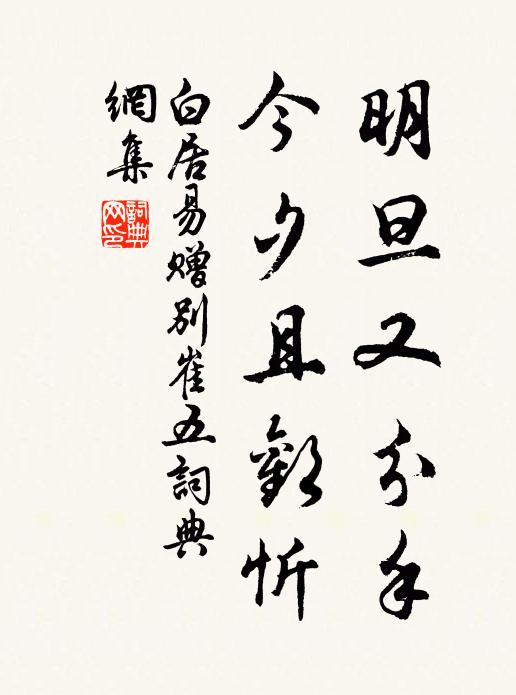 明旦又分手
今夕且歡忻
白居易贈別崔五詞典
網集
詞典網印